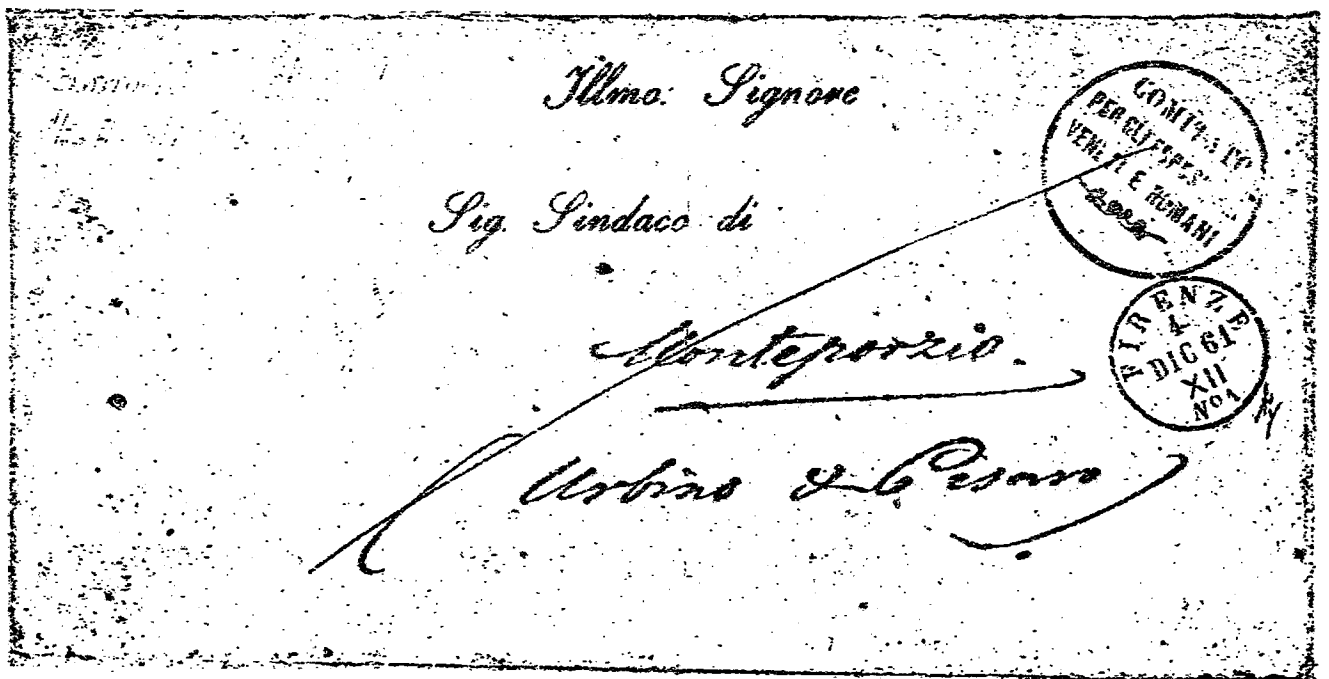 Illmo: Signore
Sig. Sindaco di
Monteporzio.
Urbino & Pesaro
COMITATO
PER GLI
VENETI E ROMANI
FIRENZE
4
DIC 61
XII
No 1